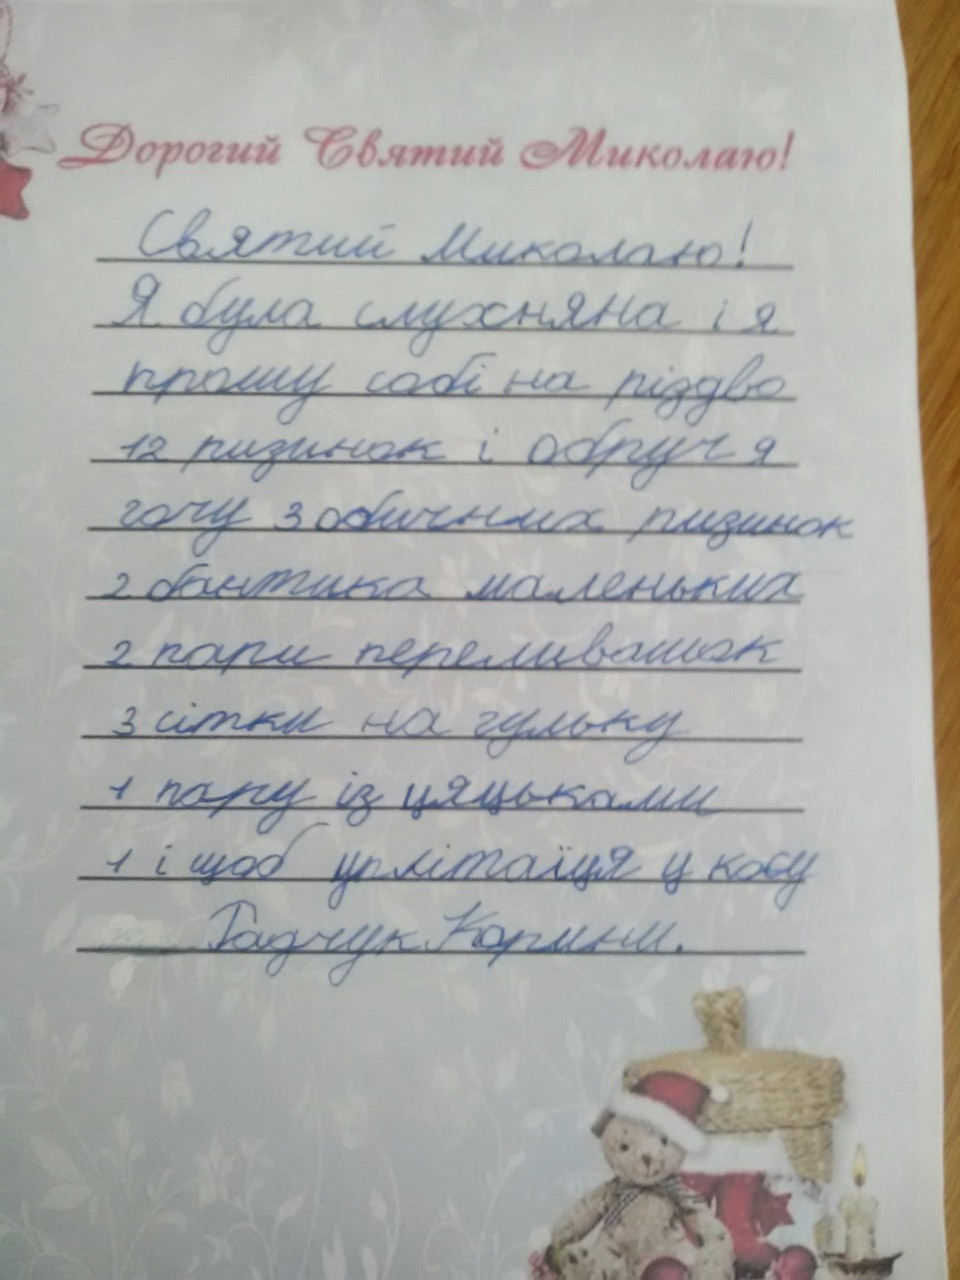 Дорогий Святий Миколаю!
Святий Миколаю!
Я була слухняна і я
прошу собі на різдво
12 ризинок і обруч я
гочу 3 обичних ризинок
2 бантика маленьких
2 пари переливашок
3 сітки на гульку
1 пару із цяцьками
1 і щоб у косу
Гадчук Карини.